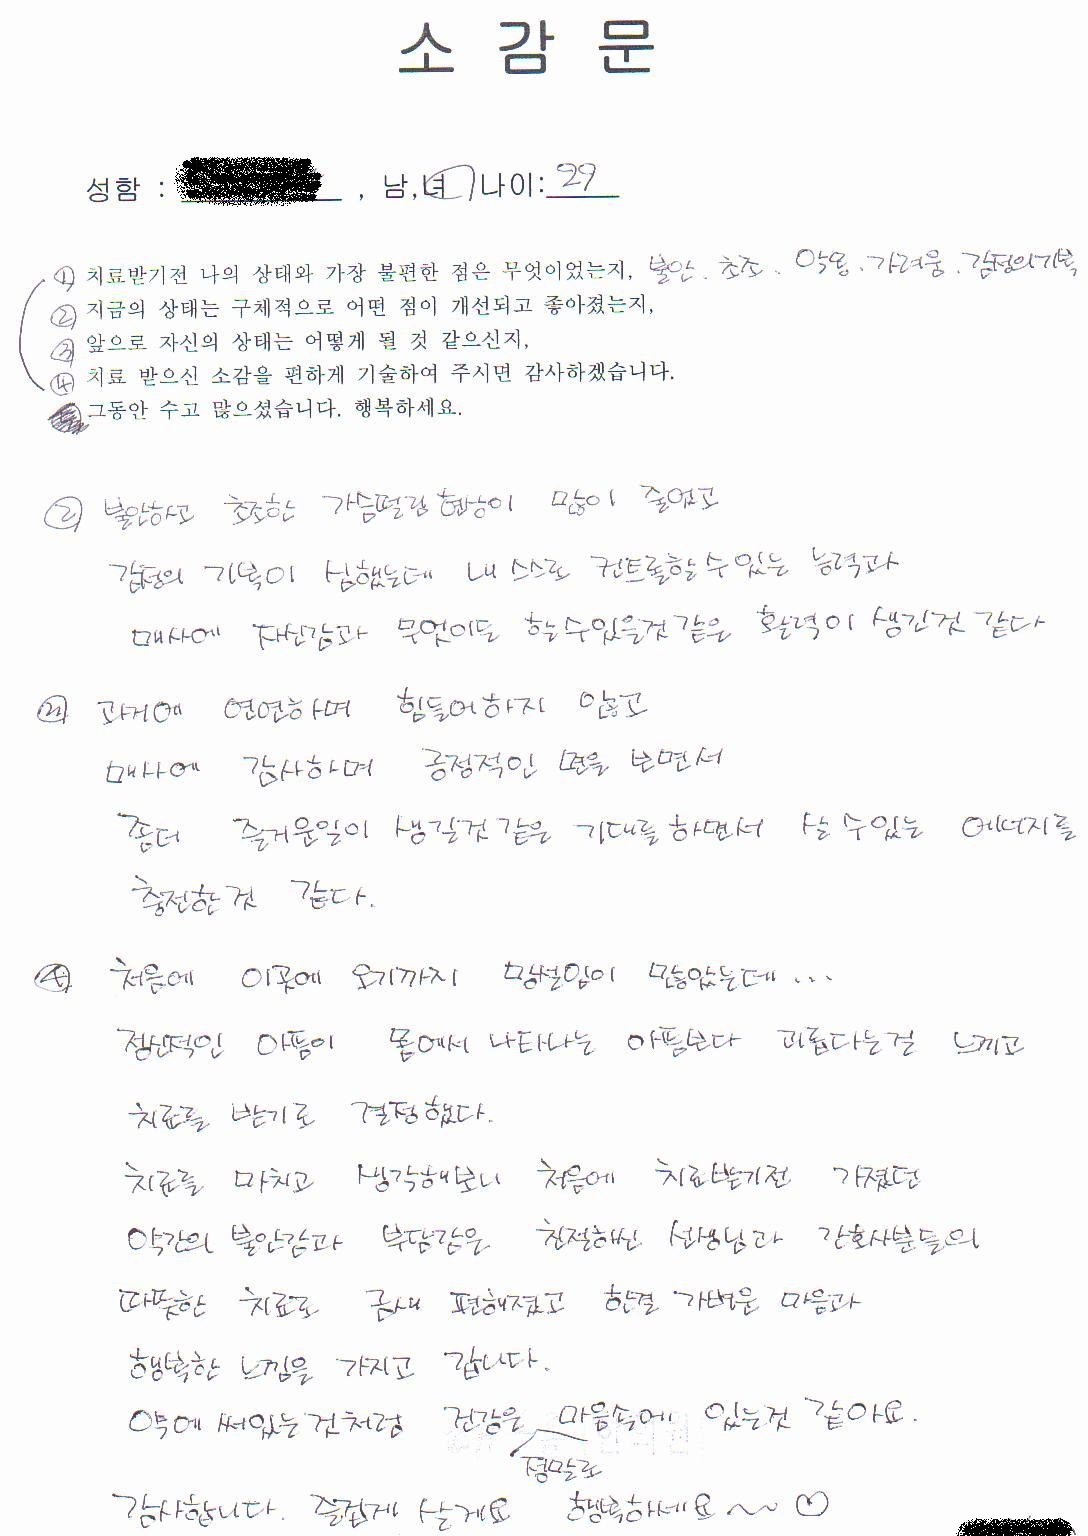 소 감 문
성함 : , 남,녀 나이: 29
① 치료받기전 나의 상태와 가장 불편한 점은 무엇이었는지, 불안. 초조. 악몽. 가려움. 감정의기복
② 지금의 상태는 구체적으로 어떤 점이 개선되고 좋아졌는지,
③ 앞으로 자신의 상태는 어떻게 될 것 같으신지,
④ 치료 받으신 소감을 편하게 기술하여 주시면 감사하겠습니다.
그동안 수고 많으셨습니다. 행복하세요.
② 불안하고 초조한 가슴떨림 현상이 많이 줄었고
감정의 기복이 심했는데 내 스스로 컨트롤할수있는 능력과
매사에 자신감과 무엇이든 할수있을것같은 활력이 생긴것 같다
③ 과거에 연연하며 힘들어하지 않고
매사에 감사하며 긍정적인 면을 보면서
좀더 즐거운일이 생길것같은 기대를하면서 살수있는 에너지를
충전한것 같다.
④ 처음에 이곳에 오기까지 망설임이 많았는데...
정신적인 아픔이 몸에서 나타나는 아픔보다 괴롭다는걸 느끼고
치료를 받기로 결정했다.
치료를 마치고 생각해보니 처음에 치료받기전 가졌던
약간의 불안감과 부담감은 친절하신 선생님과 간호사분들의
따뜻한 치료로 금새 편해졌고 한결 가벼운 마음과
행복한 느낌을 가지고 갑니다.
약에 써있는것처럼 건강은 마음속에 있는것 같아요.
정말로
감사합니다. 즐겁게 살게요 행복하세요~~ ♡